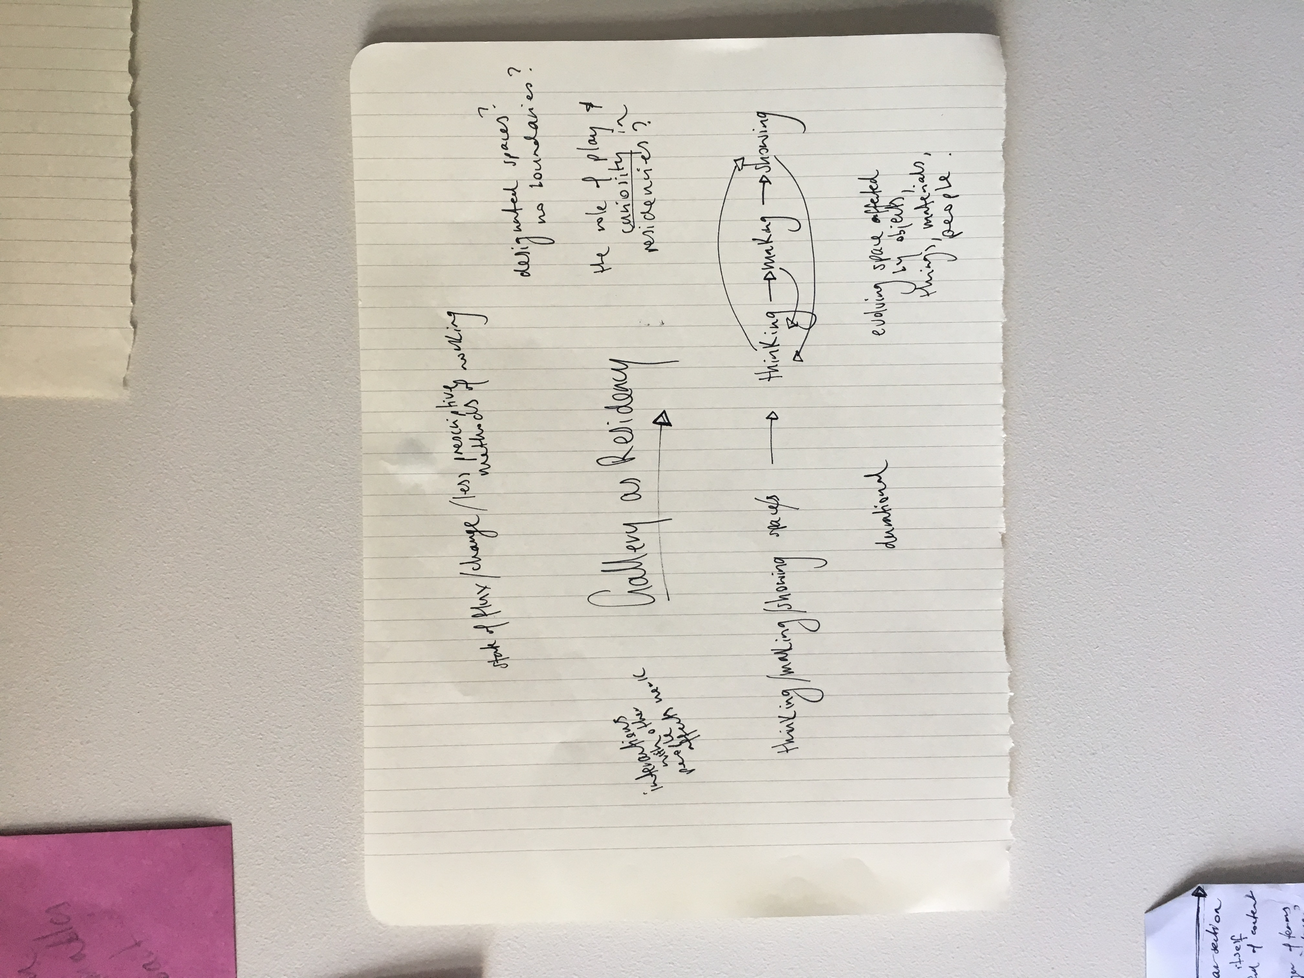 state of flux/change/less prescriptive
methods of working
designated spaces?
no boundaries?
Gallery as Residency
the role of play &
curiosity in
residencies?
interactions
with other
people
affects work
thinking/making/showing spaces → thinking → making → showing
durational
evolving space affected
by objects,
things, materials,
people.
itself
of content
of terms